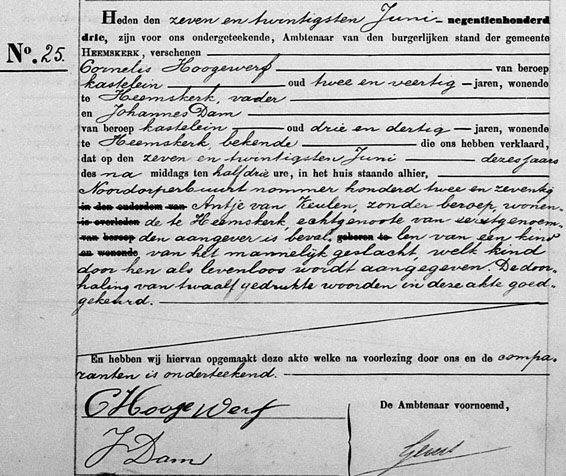 Heden den zeven en twintigsten Juni negentienhonderd
drie, zijn voor ons ondergeteekende, Ambtenaar van den burgerlijken stand der gemeente
No. 25.
HEEMSKERK, verschenen
Cornelis Hoogewerf van beroep
kastelein oud twee en veertig jaren, wonende
te Heemskerk, vader
en Johannes Dam
van beroep kastelein oud drie en dertig jaren, wonende
te Heemskerk bekende die ons hebben verklaard,
dat op den zeven en twintigsten Juni dezes jaars
des na middags ten half drie ure, in het huis staande alhier,
Noordorperbuurt nommer honderd twee en zeventig
in den ouderdom van Antje van Keulen, zonder beroep, wonen-
is overleden de te Heemskerk, echtgenoote van eerstgenoem-
van beroep den aangever is beval- geboren te len van een kind
en wonende van het mannelijk geslacht, welk kind
door hen als levenloos wordt aangegeven. De door-
haling van twaalf gedrukte woorden in deze akte goed-
gekeurd.
En hebben wij hiervan opgemaakt deze akte welke na voorlezing door ons en de compa-
ranten is onderteekend.
CHoogeWerf
De Ambtenaar voornoemd,
J Dam